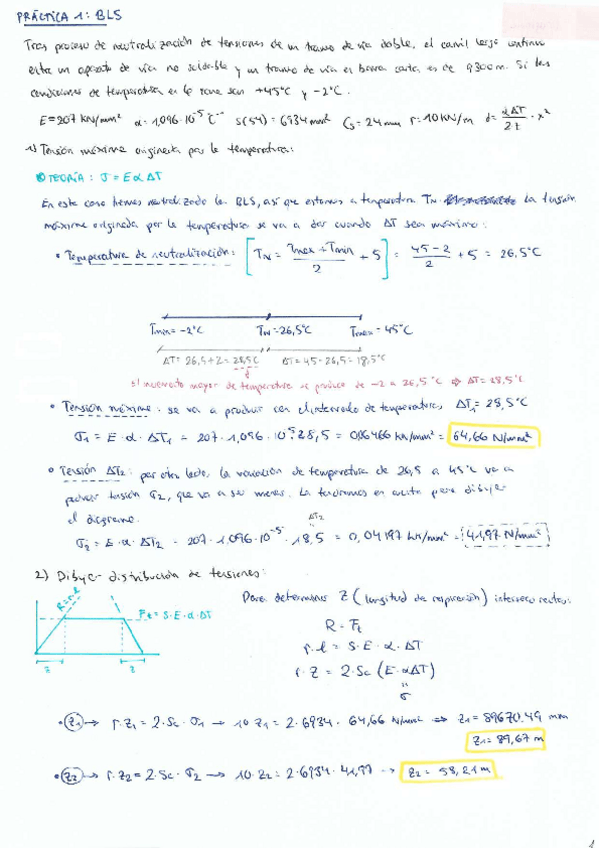 PRÁCTICA 1: BLS
Tras proceso de neutralización de tensiones de un tramo de vía doble, el carril largo continuo
entre un aparato de vía no soldable y un tramo de vía en barra corta, es de 9300m. Si las
condiciones de temperatura en la zona son +45°C y -2°C.
E=207 KN/mm² α=1,096·10⁻⁵ °C⁻¹ S(54)=6934 mm² r=10KN/m d= αΔT/2z · x²
1) Tensión máxima originada por la temperatura:
TEORÍA: σ = E α ΔT
En este caso hemos neutralizado la BLS, así que estamos a temperatura TN. La tensión
máxima originada por la temperatura se va a dar cuando ΔT sea máximo:
• Temperatura de neutralización: [TN = Tmax + Tmin / 2 + 5] = 45-2 / 2 + 5 = 26,5°C
Tmin = -2°C TN=26,5°C Tmax=45°C
ΔT= 26,5+2= 28,5°C ΔT= 45-26,5= 18,5°C
El incremento mayor de temperatura se produce de -2 a 26,5°C ⇒ ΔT= 28,5°C
• Tensión máxima: se va a producir con el intervalo de temperaturas ΔT1= 28,5°C
σ1 = E·α·ΔT1 = 207·1,096·10⁻⁵·28,5 = 0,06466 KN/mm² = 64,66 N/mm²
• Tensión ΔT2: por otro lado, la variación de temperatura de 26,5 a 45°C va a
producir tensión σ2, que va a ser menor. La tendremos en cuenta para dibujar
el diagrama.
ΔT2
σ2 = E·α·ΔT2 = 207·1,096·10⁻⁵·18,5 = 0,04197 KN/mm² = 41,97 N/mm²
2) Dibujar distribución de tensiones:
R=r·l
Ft = S·E·α·ΔT
z z
Para determinar Z (longitud de respiración) interseco rectas:
R = Ft
r·l = S·E·α·ΔT
r·Z = 2·Sc (E·αΔT)
σ
• Z1 → r·Z1 = 2·Sc·σ1 → 10·Z1 = 2·6934·64,66 N/mm² ⇒ Z1= 89670,49 mm
Z1= 89,67 m
• Z2 → r·Z2 = 2·Sc·σ2 → 10·Z2 = 2·6934·41,97 → Z2 = 58,21 m
1